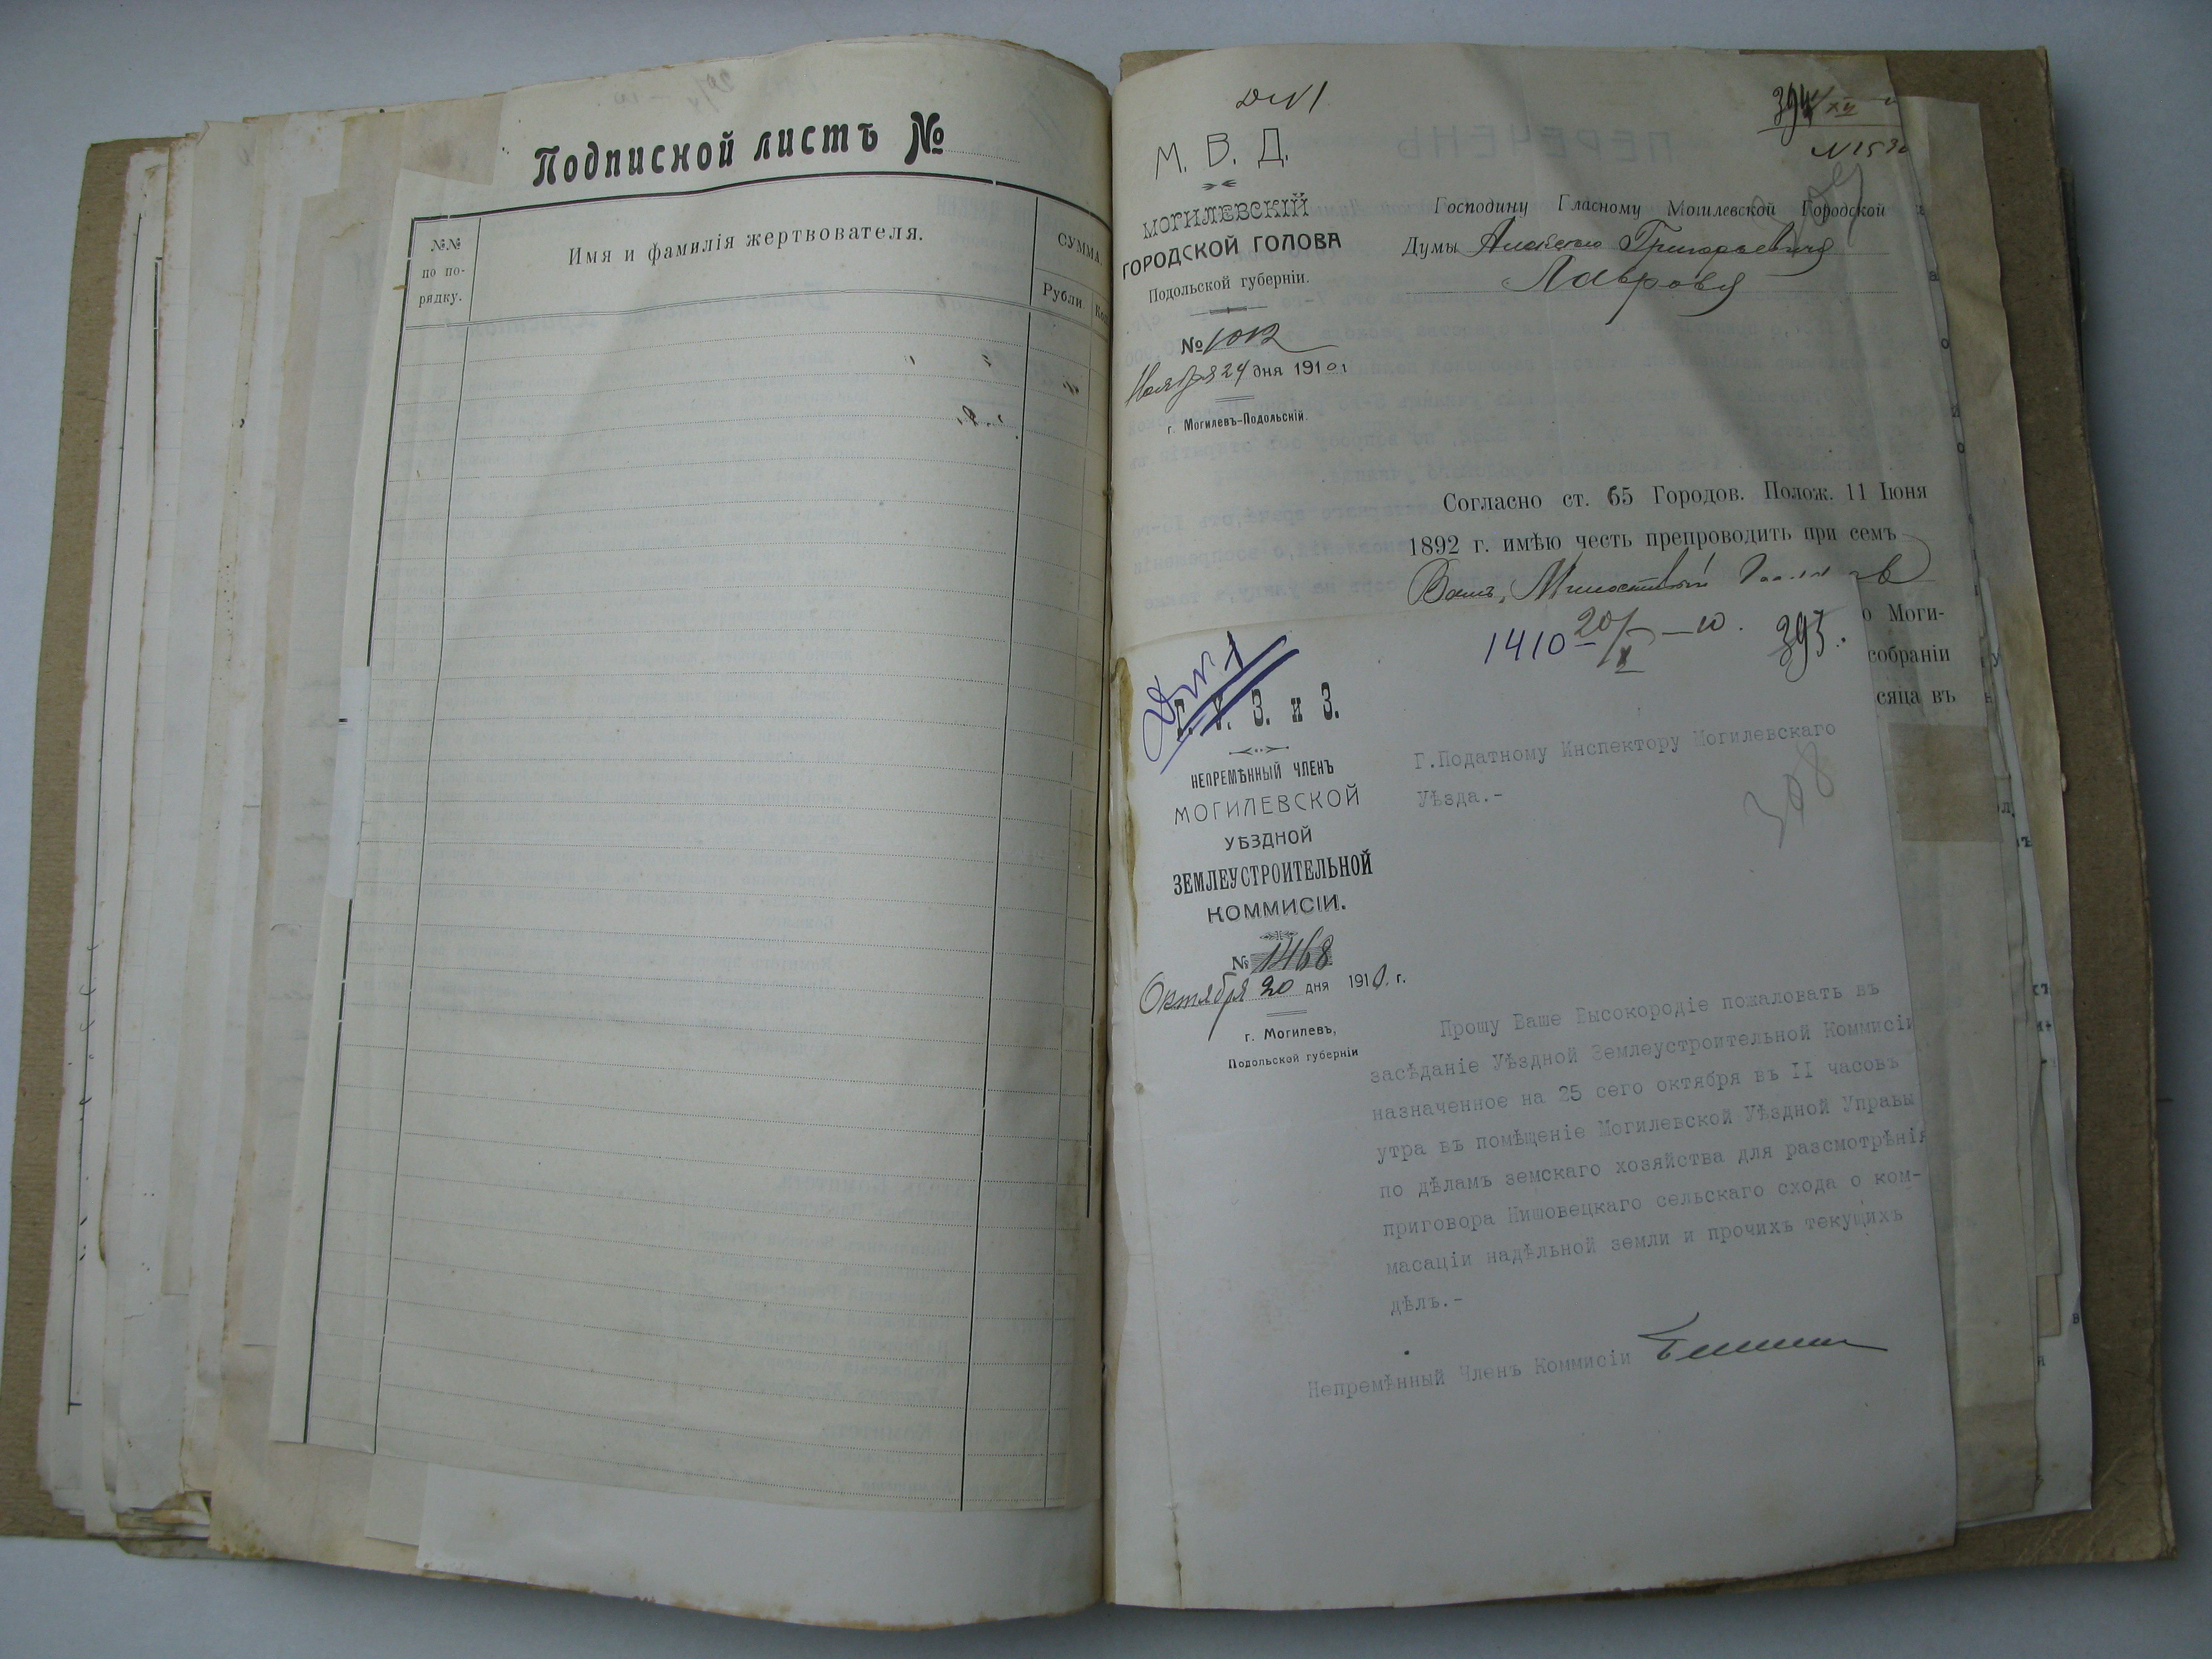 Подписной листъ №
№№
по по-
рядку.
Имя и фамилія жертвователя.
СУММА.
Рубли.
Коп
394
М. В. Д.
МОГИЛЕВСКІЙ
ГОРОДСКОЙ ГОЛОВА
Подольской губерніи.
№ 1012
Ноября 24 дня 1910 г.
г. Могилевъ-Подольскій.
Господину Гласному Могилевской Городской
Думы Алексею Григорьевичу
Лаврову
Согласно ст. 65 Городов. Полож. 11 Іюня
1892 г. имѣю честь препроводить при семъ
Вамъ, Милостивый
о Моги-
собраніи
сяца въ
1410 20/X — 10. 393.
Г. У. З. и З.
НЕПРЕМѢННЫЙ ЧЛЕНЪ
МОГИЛЕВСКОЙ
УѢЗДНОЙ
ЗЕМЛЕУСТРОИТЕЛЬНОЙ
КОММИСІИ.
№ 1468
Октября 20 дня 1910. г.
г. Могилевъ,
Подольской губерніи
Г.Податному Инспектору Могилевскаго
Уѣзда.-
308
Прошу Ваше Высокородіе пожаловать въ
засѣданіе Уѣздной Землеустроительной Коммисіи
назначенное на 25 сего октября въ II часовъ
утра въ помѣщеніе Могилевской Уѣздной Управы
по дѣламъ земскаго хозяйства для разсмотрѣнія
приговора Нишовецкаго сельскаго схода о ком-
масаціи надѣльной земли и прочихъ текущихъ
дѣлъ.-
Непремѣнный Членъ Коммисіи